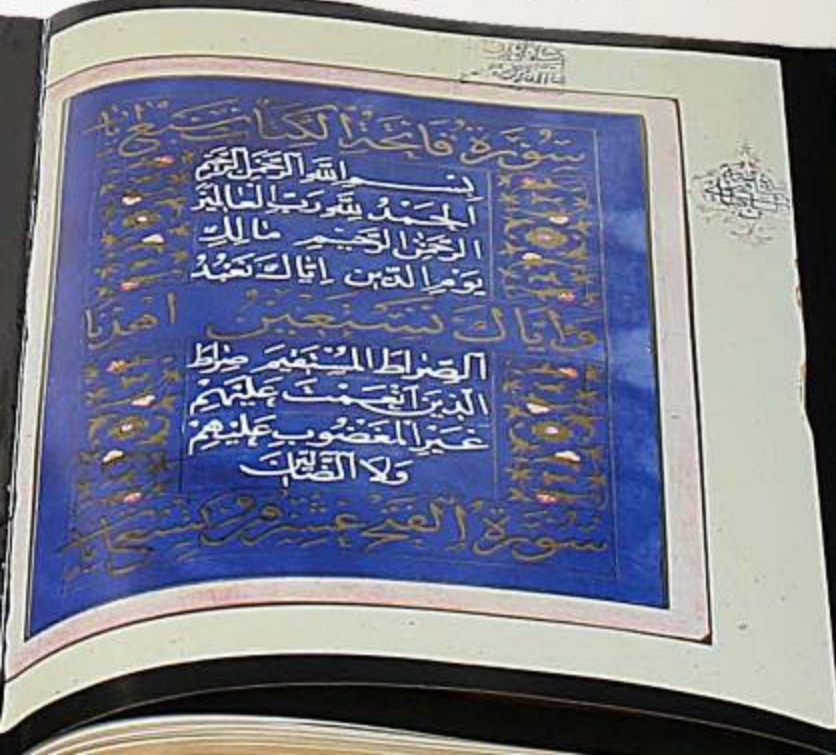 سورة فاتحة الكتاب سبع آيات
بسم الله الرحمن الرحيم
الحمد لله رب العالمين
الرحمن الرحيم مالك
يوم الدين اياك نعبد
واياك نستعين اهدنا
الصراط المستقيم صراط
الذين انعمت عليهم
غير المغضوب عليهم
ولا الضالين
سورة الفتح عشرون آيات